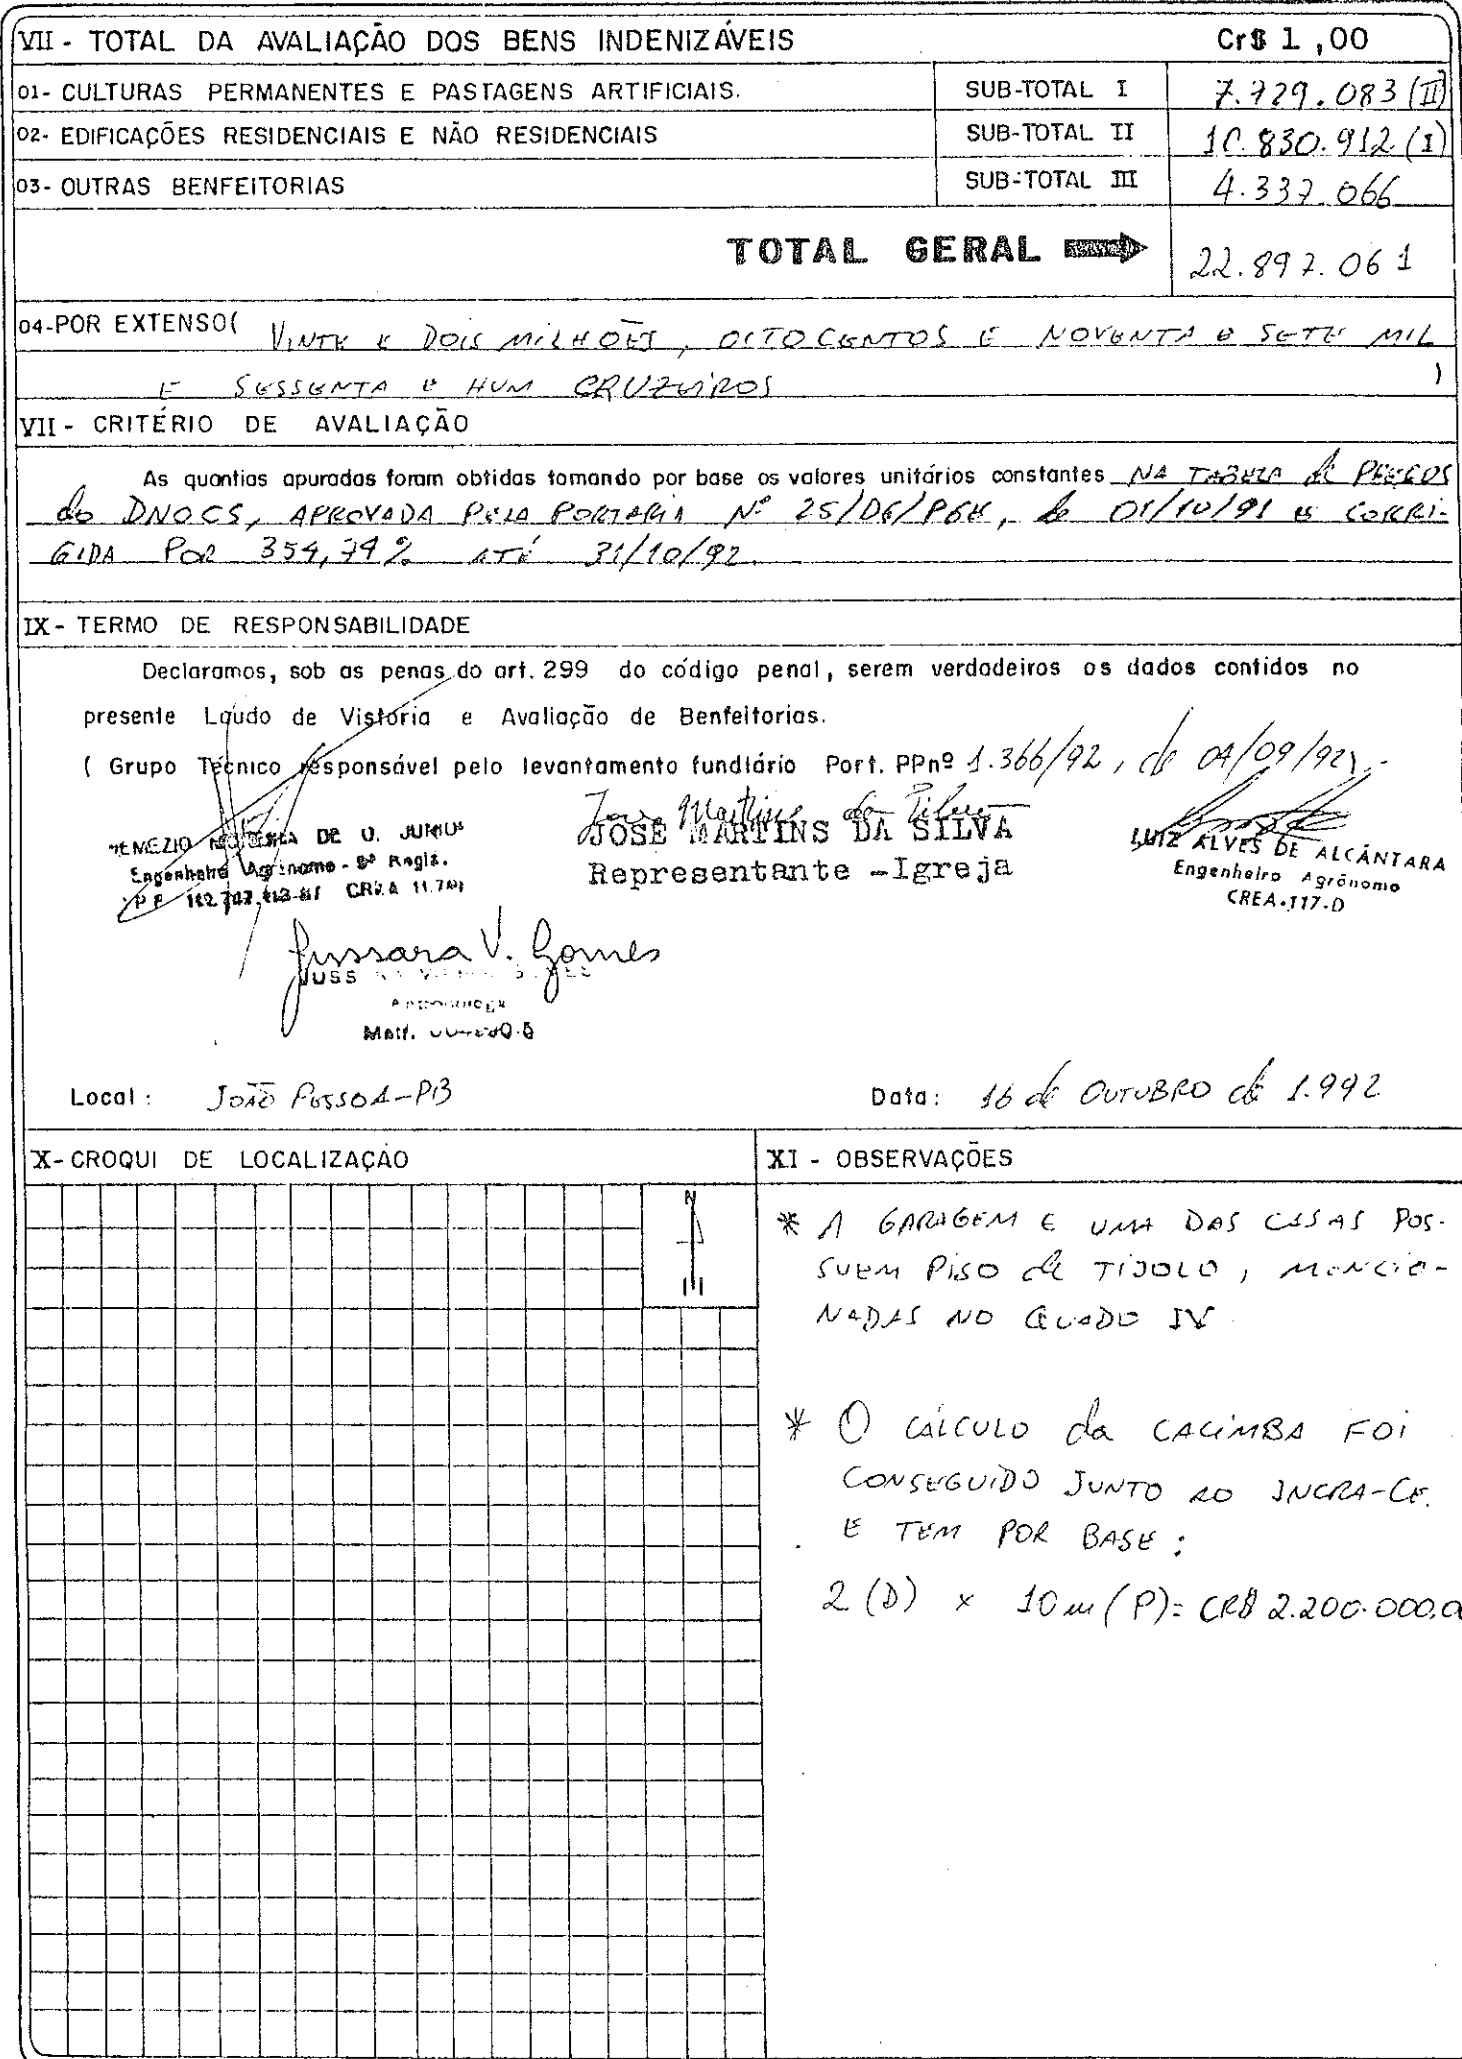 VII - TOTAL DA AVALIAÇÃO DOS BENS INDENIZÁVEIS Cr$ 1,00
01- CULTURAS PERMANENTES E PASTAGENS ARTIFICIAIS. SUB-TOTAL I 7.729.083 (II)
02- EDIFICAÇÕES RESIDENCIAIS E NÃO RESIDENCIAIS SUB-TOTAL II 10.830.912 (I)
03- OUTRAS BENFEITORIAS SUB-TOTAL III 4.337.066
TOTAL GERAL 22.897.061
04-POR EXTENSO( VINTE E DOIS MILHÕES, OITOCENTOS E NOVENTA E SETE MIL
E SESSENTA E HUM CRUZEIROS )
VII - CRITÉRIO DE AVALIAÇÃO
As quantias apuradas foram obtidas tomando por base os valores unitários constantes NA TABELA de PREÇOS
do DNOCS, APROVADA PELA PORTARIA Nº 25/DG/PGE, de 01/10/91 E CORRI-
GIDA POR 354,74% ATÉ 31/10/92.
IX - TERMO DE RESPONSABILIDADE
Declaramos, sob as penas do art. 299 do código penal, serem verdadeiros os dados contidos no
presente Laudo de Vistoria e Avaliação de Benfeitorias.
( Grupo Técnico responsável pelo levantamento fundiário Port. PPnº 1.366/92, de 04/09/92).-
DE O. JUNIOR
Engenheiro Agrônomo - 8ª Regiã.
CREA
Jose Martins da Silva
JOSE MARTINS DA SILVA
Representante -Igreja
LUIZ ALVES DE ALCÂNTARA
Engenheiro Agrônomo
CREA.117.D
Jussara V. Gomes
Matf.
Local: JOÃO PESSOA-PB Data: 16 de OUTUBRO de 1.992
X- CROQUI DE LOCALIZAÇÃO
N
XI - OBSERVAÇÕES
* A GARAGEM E UMA DAS CASAS POS-
SUEM PISO de TIJOLO, MENCIO-
NADAS NO QUADO IV
* O CÁLCULO da CACIMBA FOI
CONSEGUIDO JUNTO AO INCRA-CE.
E TEM POR BASE:
2 (D) x 10m (P)= CR$ 2.200.000,0